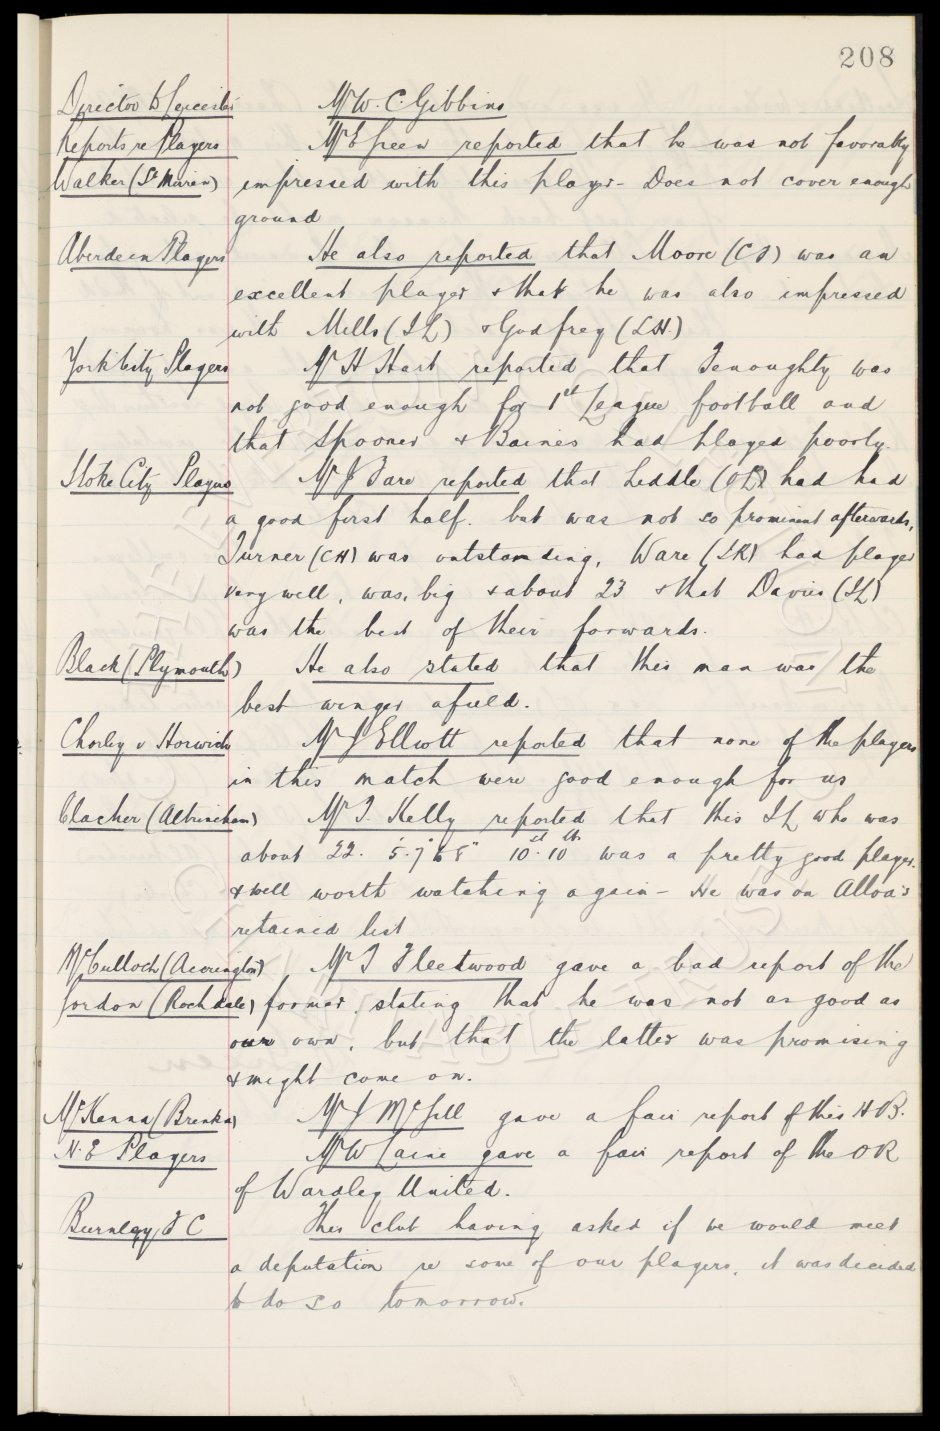 208
Director to Leicester Mr W. C. Gibbins
Reports re Players Mr E Green reported that he was not favorably
Walker (St Mirren) impressed with this player - Does not cover enough
ground
Aberdeen Players He also reported that Moore (CF) was an
excellent player & that he was also impressed
with Mills (IL) & Godfrey (LH.)
York City Players Mr H Hart reported that Fenoughty was
not good enough for 1st League football and
that Spooner & Baines had played poorly.
Stoke City Players Mr J Fare reported that Liddle (OL) had had
a good first half. but was not so prominent afterwards,
Turner (CH) was outstanding, Ware (IR) had played
very well, was, big & about 23 & that Davies (IL)
was the best of their forwards.
Black (Plymouth) He also stated that this man was the
best winger afield.
Chorley v Horwich Mr J Elliott reported that none of the players
in this match were good enough for us
Clacher (Altrincham) Mr T. Kelly reported that this IL who was
about 22. 5'.7" to 8" 10st. 10lb was a pretty good player.
& well worth watching again - He was on Alloa's
retained list
McCulloch (Accrington) Mr T Fleetwood gave a bad report of the
Gordon (Rochdale) former, stating that he was not as good as
our own, but that the latter was promising
& might come on.
McKenna (Brenka) Mr J McGill gave a fair report of this HB.
N. E Players Mr W Laine gave a fair report of the OR
of Wardley United.
Burnley F C This club having asked if we would meet
a deputation re some of our players, it was decided
to do so tomorrow.